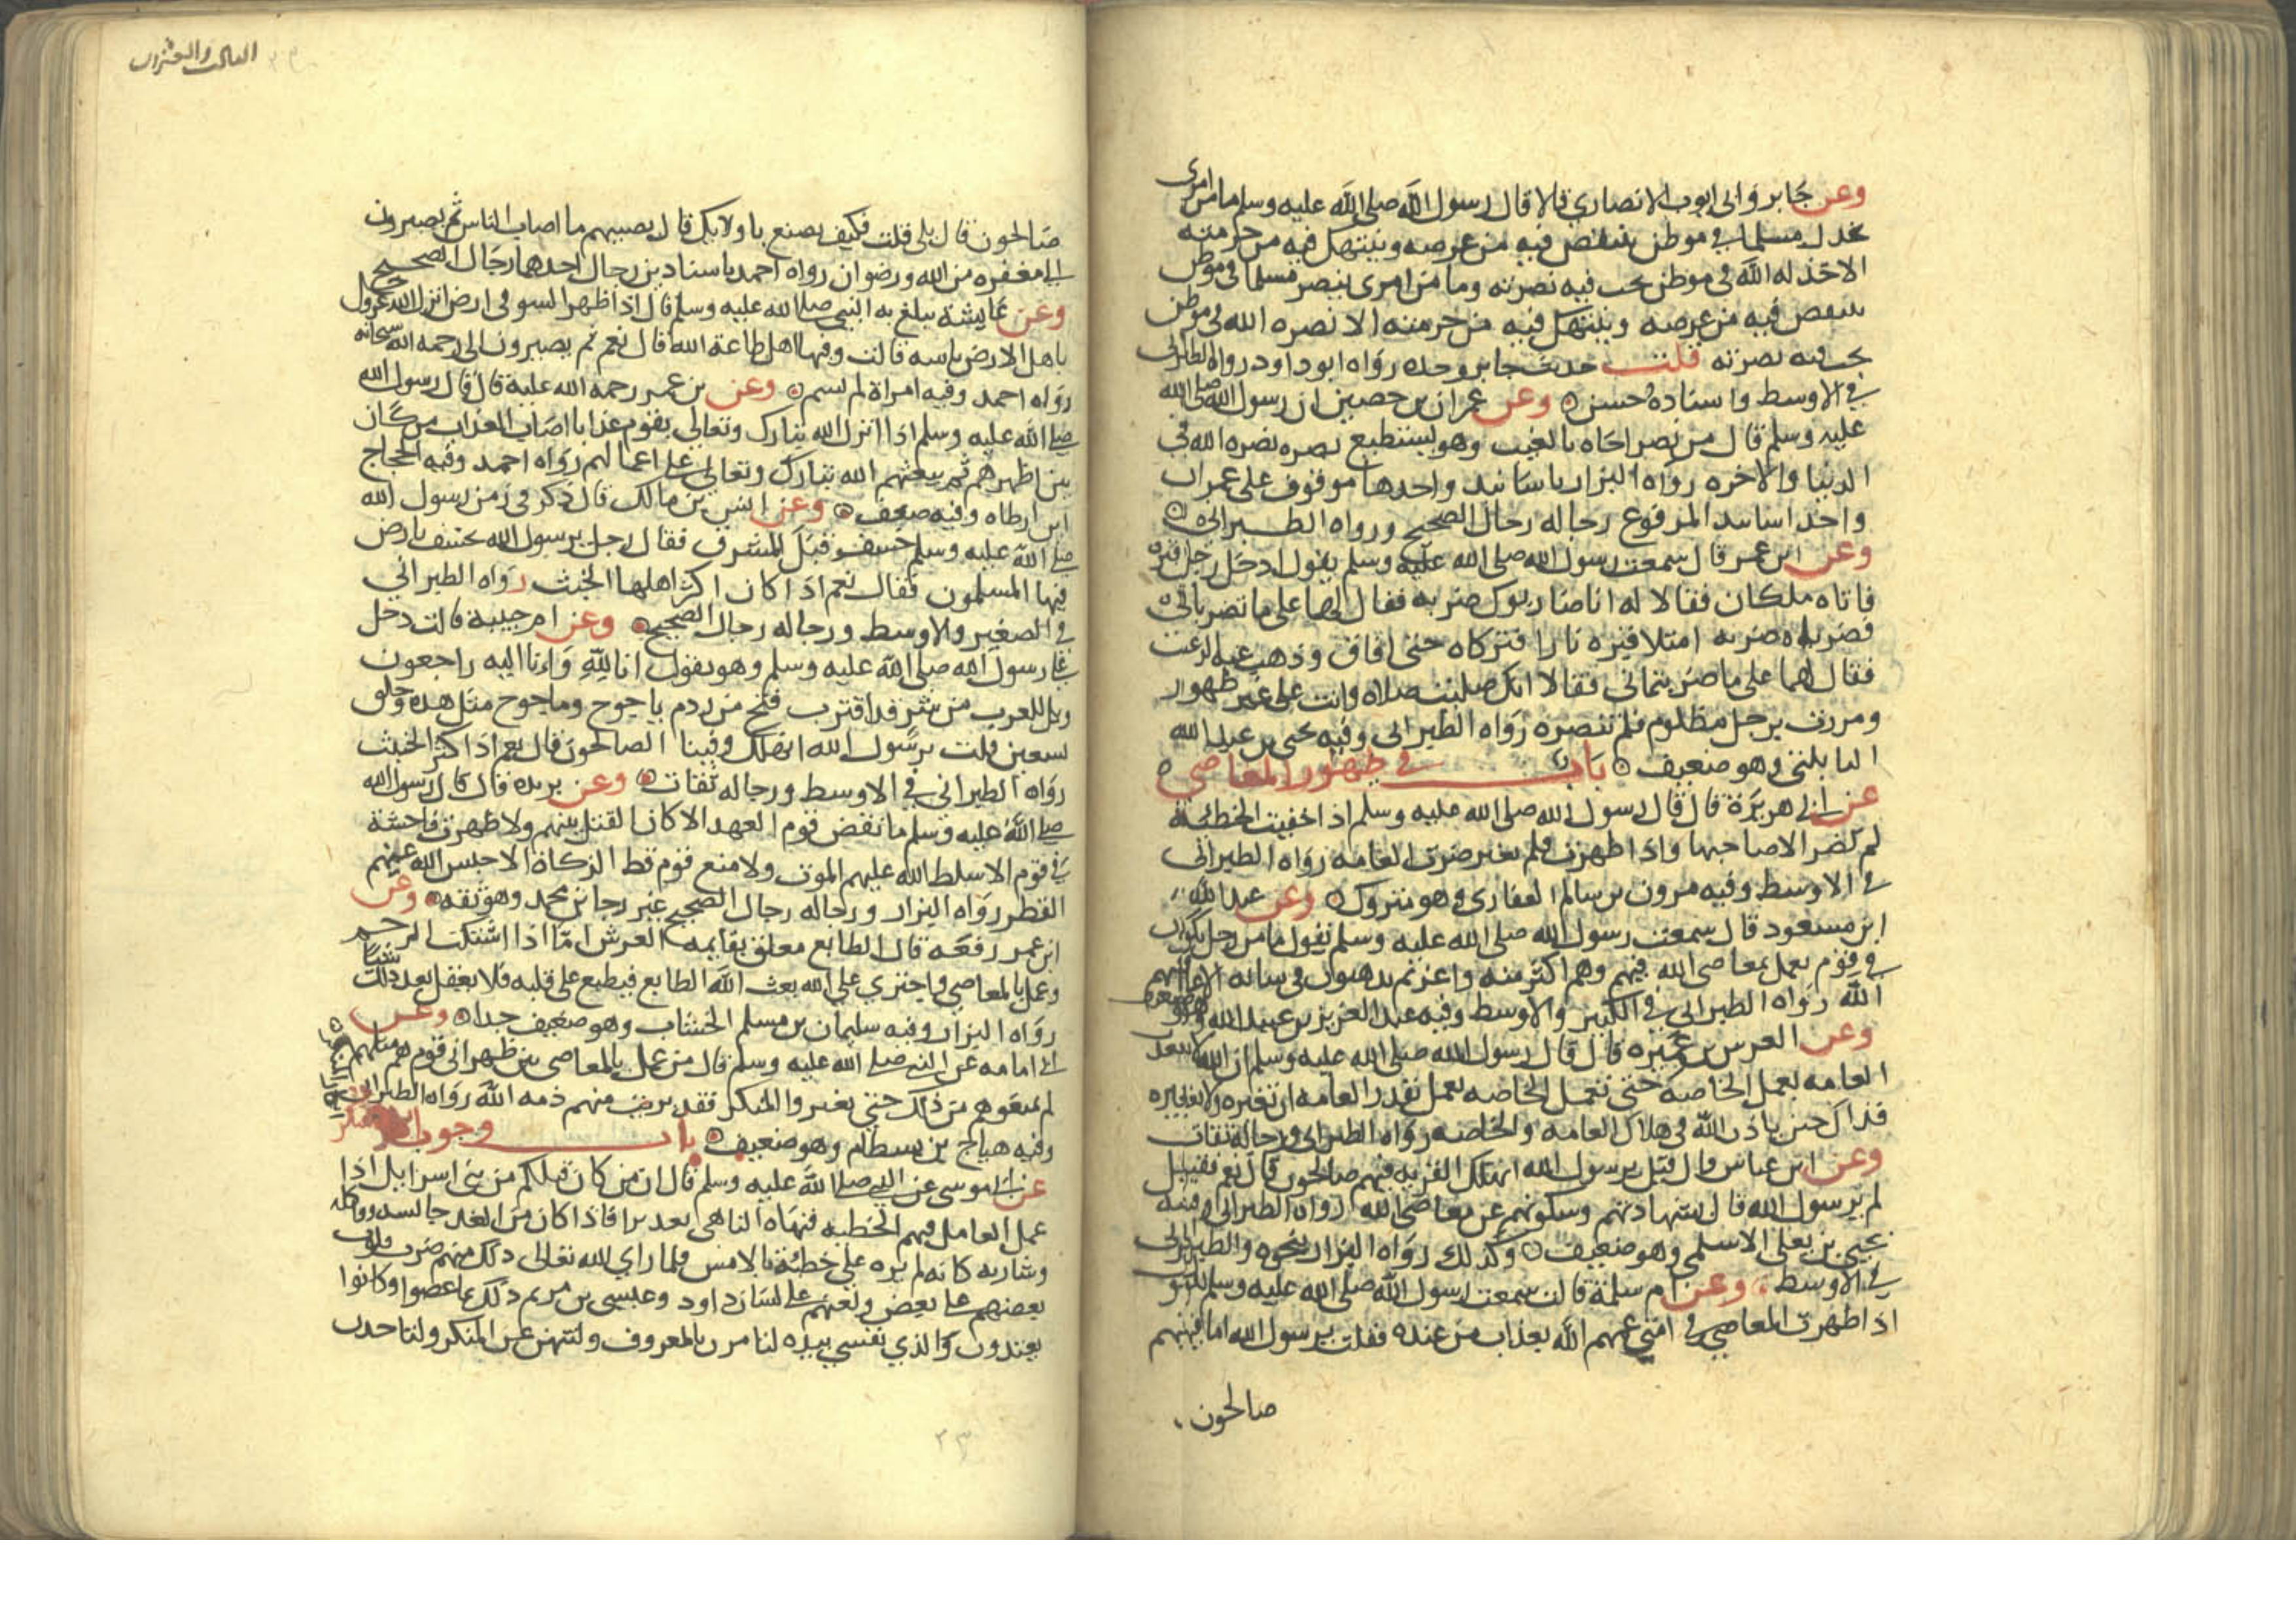 وعن جابر وابى ايوب الانصاري قالا قال رسول الله صلى الله عليه وسلم ما من امرى
يخذل مسلما في موطن ينتقص فيه من عرضه وينتهك فيه من حرمته
الا خذله الله في موطن يحب فيه نصرته وما من امرى ينصر مسلما في موطن
ينتقص فيه من عرضه وينتهك فيه من حرمته الا نصره الله في موطن
يحب فيه نصرته قلت حديث جابر وحده رواه ابو داود رواه الطبراني
في الاوسط واسناده حسن وعن عمران بن حصين ان رسول الله صلى الله
عليه وسلم قال من نصر اخاه بالغيب وهو يستطيع نصره نصره الله في
الدنيا والاخره رواه البزار باسانيد واحدها موقوف على عمران
واحد اسانيد المرفوع رجاله رجال الصحيح ورواه الطبراني
وعن ابن عمر قال سمعت رسول الله صلى الله عليه وسلم يقول ادخل رجل قبره
فاتاه ملكان فقالا له انا ضاربوك ضربه فقال لهما على ما تضرباني
فضرباه ضربه امتلا قبره نارا فتركاه حتى افاق وذهب عنه الرعب
فقال لهما على ما ضربتماني فقالا انك صليت صلاه وانت على غير طهور
ومررت برجل مظلوم فلم تنصره رواه الطبراني وفيه يحيى بن عبد الله
البابلتي وهو ضعيف باب في ظهور المعاصي
عن ابي هريرة قال قال رسول الله صلى الله عليه وسلم اذا خفيت الخطيئة
لم تضر الا صاحبها واذا ظهرت فلم تغير ضرت العامه رواه الطبراني
في الاوسط وفيه مرون بن سالم الغفاري وهو متروك وعن عبد الله
ابن مسعود قال سمعت رسول الله صلى الله عليه وسلم يقول ما من رجل
في قوم يعمل بمعاصي الله فيهم وهم اكثر منه واعز ثم يدهنون في شانه الا عاقبهم
الله رواه الطبراني في الكبير والاوسط وفيه عبد العزيز بن عبيد الله
وعن العرس بن عميره قال قال رسول الله صلى الله عليه وسلم ان الله لا يعذب
العامه بعمل الخاصة حتى تعمل الخاصه بعمل تقدر العامه ان تغيره ولا تغيره
فذاك حين ياذن الله في هلاك العامه والخاصه رواه الطبراني ورجاله ثقات
وعن ابن عباس قال قيل يرسول الله اتهلك القريه فيهم صالحون قال نعم فقيل
لم يرسول الله قال بتهاونهم وسكوتهم عن معاصي الله رواه الطبراني وفيه
يحيى بن يعلى الاسلمي وهو ضعيف وكذلك رواه البزار بنحوه والطبراني
في الاوسط وعن ام سلمة قالت سمعت رسول الله صلى الله عليه وسلم يقول
اذا ظهرت المعاصي في امتي عمهم الله بعذاب من عنده فقلت يرسول الله اما فيهم
صالحون
الثالث والعشرون
صالحون قال بلى قلت فكيف يصنع باولايك قال يصيبهم ما اصاب الناس ثم يصيرون
الى مغفره من الله ورضوان رواه احمد باسنادين رجال احدهما رجال الصحيح
وعن عايشة تبلغ به النبي صلى الله عليه وسلم قال اذا ظهر السو في ارض انزل الله عز وجل
باهل الارض باسه قالت وفيها اهل طاعة الله قال نعم ثم يصيرون الى رحمه الله سبحانه
رواه احمد وفيه امراة لم تسم وعن بن عمر رحمه الله عليه قال قال رسول الله
صلى الله عليه وسلم اذا انزل الله تبارك وتعالى بقوم عذابا اصاب العذاب من كان
بين اظهرهم ثم يبعثهم الله تبارك وتعالى على اعمالهم رواه احمد وفيه الحجاج
ابن ارطاه وفيه ضعف وعن انس بن مالك قال ذكر في زمن رسول الله
صلى الله عليه وسلم خسف قبل المشرق فقال رجل يرسول الله يخسف بارض
فيها المسلمون فقال نعم اذا كان اكثر اهلها الخبث رواه الطبراني
في الصغير والاوسط ورجاله رجال الصحيح وعن ام حبيبة قالت دخل
علي رسول الله صلى الله عليه وسلم وهو يقول انا لله وانا اليه راجعون
ويل للعرب من شر قد اقترب فتح من ردم ياجوج وماجوج مثل هذه وحلق
تسعين قلت يرسول الله انهلك وفينا الصالحون قال نعم اذا كثر الخبث
رواه الطبراني في الاوسط ورجاله ثقات وعن بريده قال قال رسول الله
صلى الله عليه وسلم ما نقض قوم العهد الا كان القتل بينهم ولا ظهرت فاحشة
في قوم الا سلط الله عليهم الموت ولا منع قوم قط الزكاة الا حبس الله عنهم
القطر رواه البزار ورجاله رجال الصحيح غير رجا بن محمد وهو ثقه وعن
ابن عمر رفعه قال الطابع معلق بقايمه العرش اما اذا اشتكت الرحم
وعمل بالمعاصي واجتري على الله بعث الله الطابع فيطبع على قلبه فلا يعقل بعد ذلك شيئا
رواه البزار وفيه سليمان بن مسلم الخشاب وهو ضعيف جدا وعن
ابي امامه عن النبي صلى الله عليه وسلم قال من عمل بالمعاصي بين ظهراني قوم هم مثلهم
لم يمنعوهم من ذلك حتى يغيروا المنكر فقد برئت منهم ذمه الله رواه الطبراني
وفيه هياج بن بسطام وهو ضعيف باب وجوب انكار المنكر
عن ابي موسى عن النبي صلى الله عليه وسلم قال ان من كان قبلكم من بني اسرايل اذا
عمل العامل فيهم الخطيه فنهاه الناهي تعديرا فاذا كان من الغد جالسه وواكله
وشاربه كانه لم يره على خطيئة بالامس فلما راي الله تعالى ذلك منهم ضرب قلوب
بعضهم على بعض ولعنهم على لسان داود وعيسى بن مريم ذلك بما عصوا وكانوا
يعتدون والذي نفسي بيده لتامرن بالمعروف ولتنهن عن المنكر ولتاخذن
٢٣